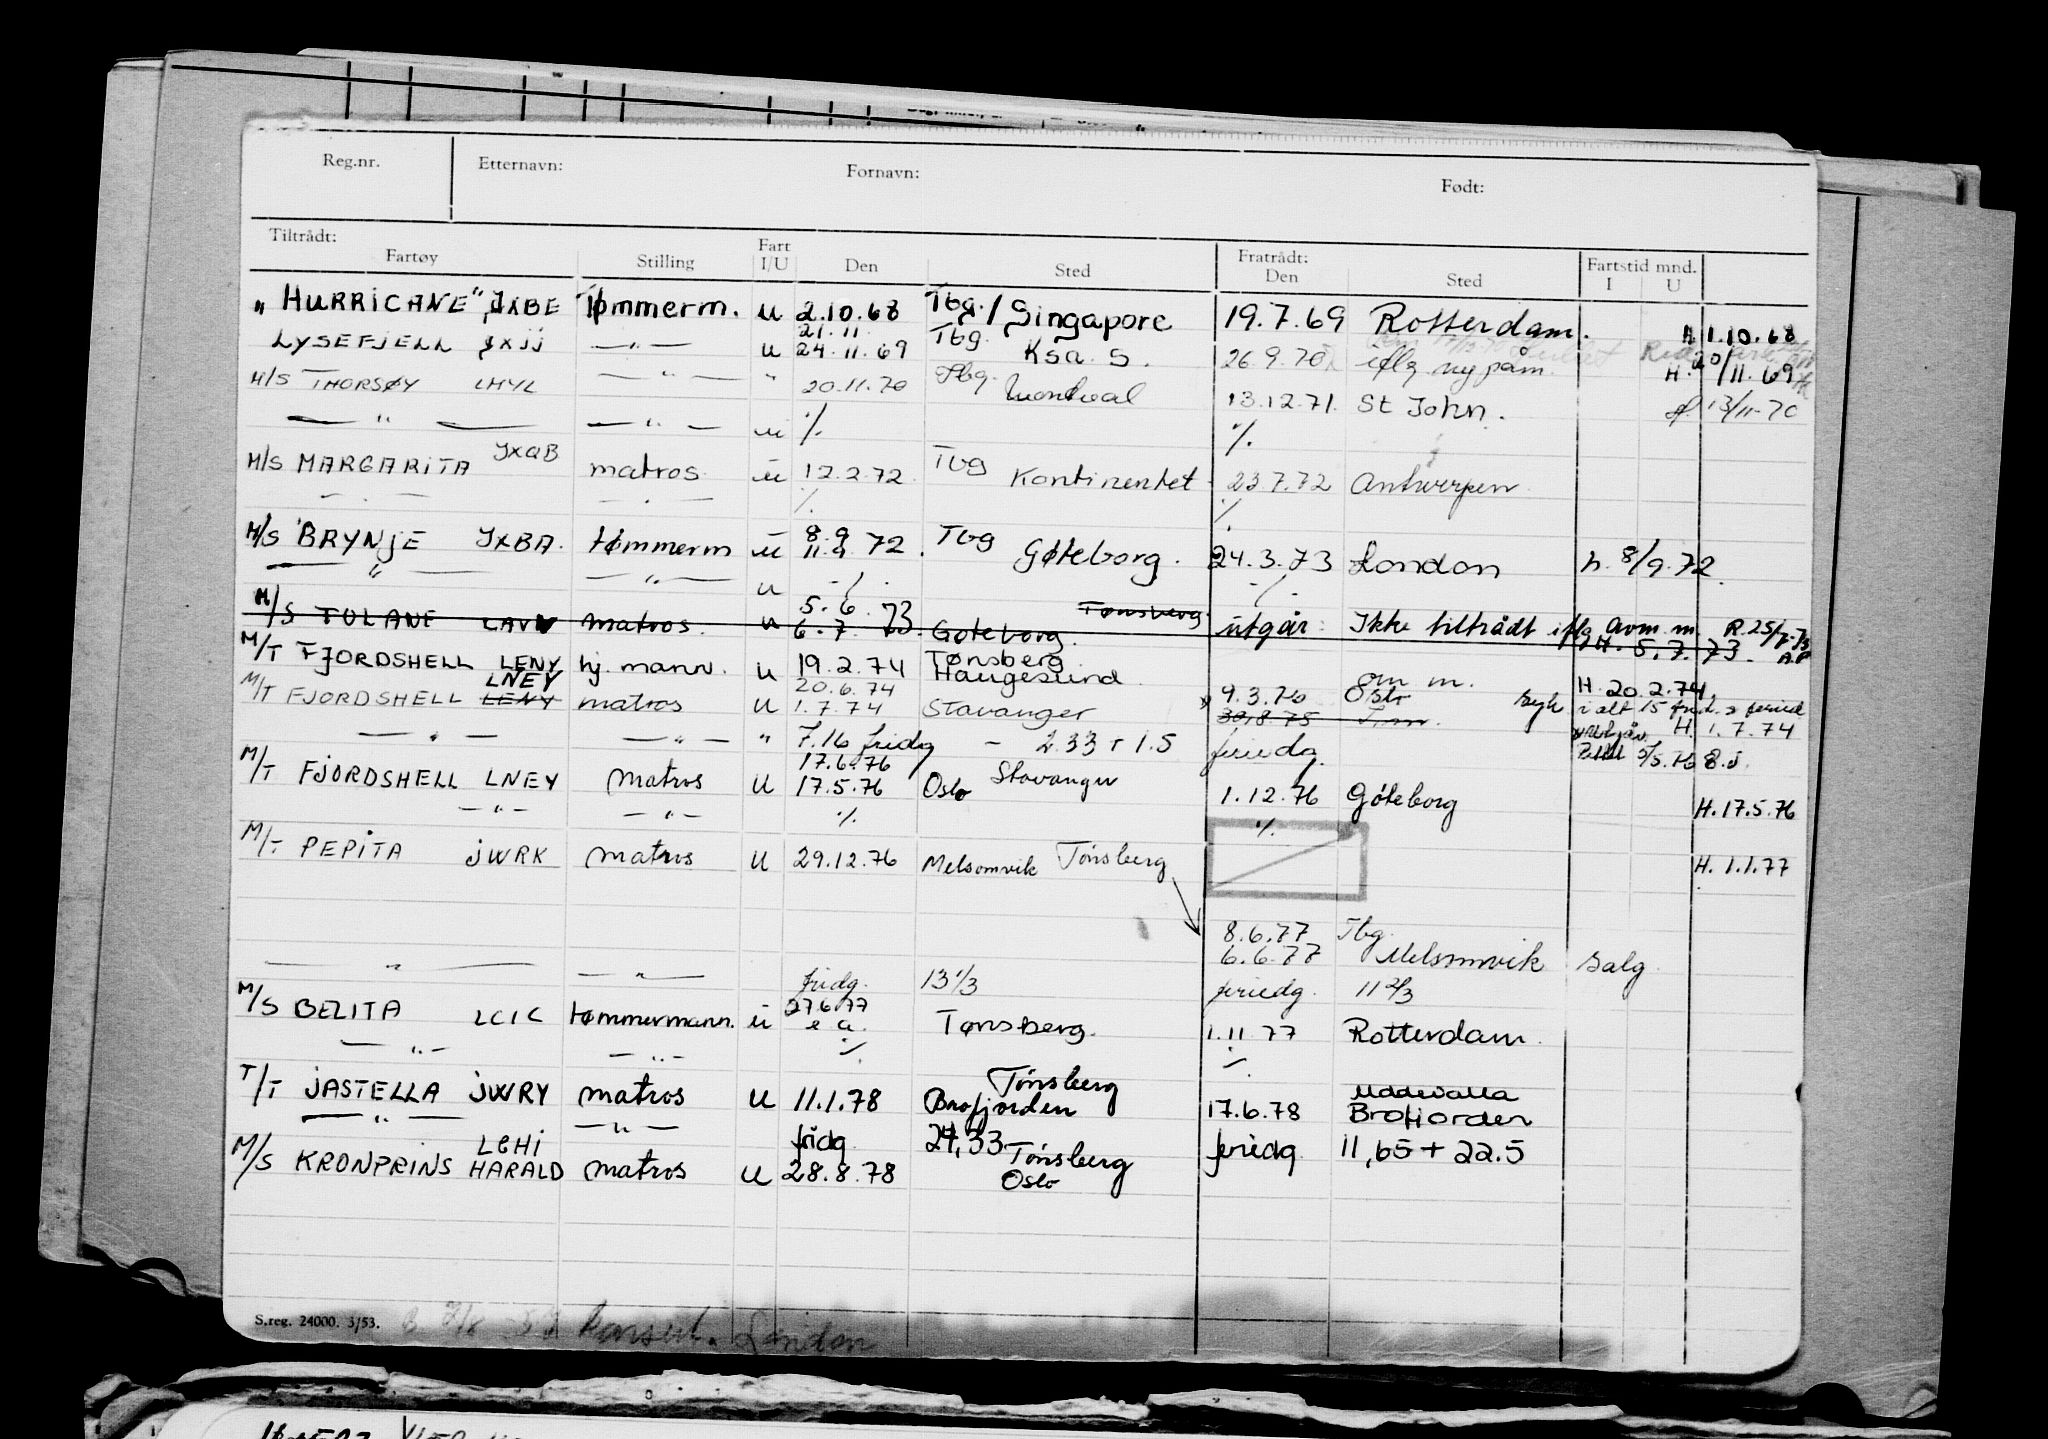 Reg.nr. Etternavn: Fornavn: Født:
Tiltrådt: Fratrådt: Fartstid mnd.
Fartøy Stilling Fart I/U Den Sted Den Sted I U
"HURRICANE" JXBE Tømmerm. U 2.10.68 Tbg. / Singapore 19.7.69 Rotterdam. H 1.10.68
LYSEFJELL JXJJ — " — U 21.11. 24.11.69 Tbg. Ksa. S. 26.9.70 iflg ny påm. H. 20/11.69
M/S THORSØY LMYL — " — " 20.11.70 Tbg. Montreal 13.12.71. St John. 13/11-70
— " — — " — u ./. ./.
M/S MARGARITA JXQB matros u 17.2.72 Tbg Kontinentet 23.7.72 Antwerpen
— " — — " — ./. ./.
M/S BRYNJE JXBA. tømmerm u 8.9 11.9 72. Tbg Gøteborg. 24.3.73 London h. 8/9.72.
— " — — " — u ./. ./.
M/S TULANE LAVV matros. u 5.6.73 6.7. Tønsberg. Gøteborg. utgår: Ikke tiltrådt iflg avm. m. R.25/7-73
H. 5.7.73. A.P
M/T FJORDSHELL LENY hj. mann. U 19.2.74 Tønsberg Haugesund om m. H. 20.2.74.
M/T FJORDSHELL LNEY LENY matros U 20.6.74 1.7.74 Stavanger 9.3.76 Oslo 30.8.75 syk i alt 15
— " — — " — " 7.16 fridg — 2.33 + 1.5 feriedg. H. 1.7.74
M/T FJORDSHELL LNEY matros U 17.6.76 17.5.76 Oslo Stavanger 1.12.76 Gøteborg H.17.5.76
— " — — " — ./. ./.
M/T PEPITA JWRK matros U 29.12.76 Melsomvik Tønsberg H. 1.1.77
8.6.77 Tbg.
6.6.77 Melsomvik salg.
— " — — " — fridg. 13 1/3 feriedg. 11 2/3
M/S BELITA LCIC tømmermann. u 27.6.77 e a. Tønsberg. 1.11.77 Rotterdam.
— " — — " — ./. ./.
T/T JASTELLA JWRY matros U 11.1.78 Tønsberg Brofjorden 17.6.78 Uddevalla Brofjorden
— " — — " — fridg 24,33 feriedg 11,65 + 22.5
M/S KRONPRINS HARALD LEHI matros U 28.8.78 Tønsberg Oslo
S.reg. 24000. 3/53. London